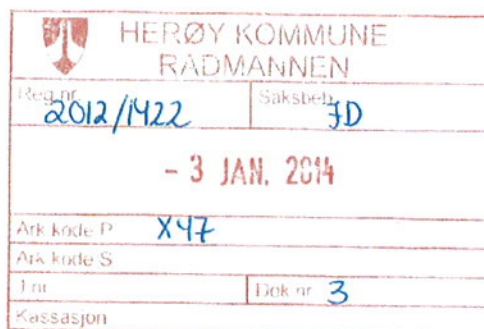 HERØY KOMMUNE
RÅDMANNEN
Reg.nr. Saksbeh.
2012/1422 JD
- 3 JAN. 2014
Ark kode P X47
Ark kode S
J.nr. Dok nr. 3
Kassasjon